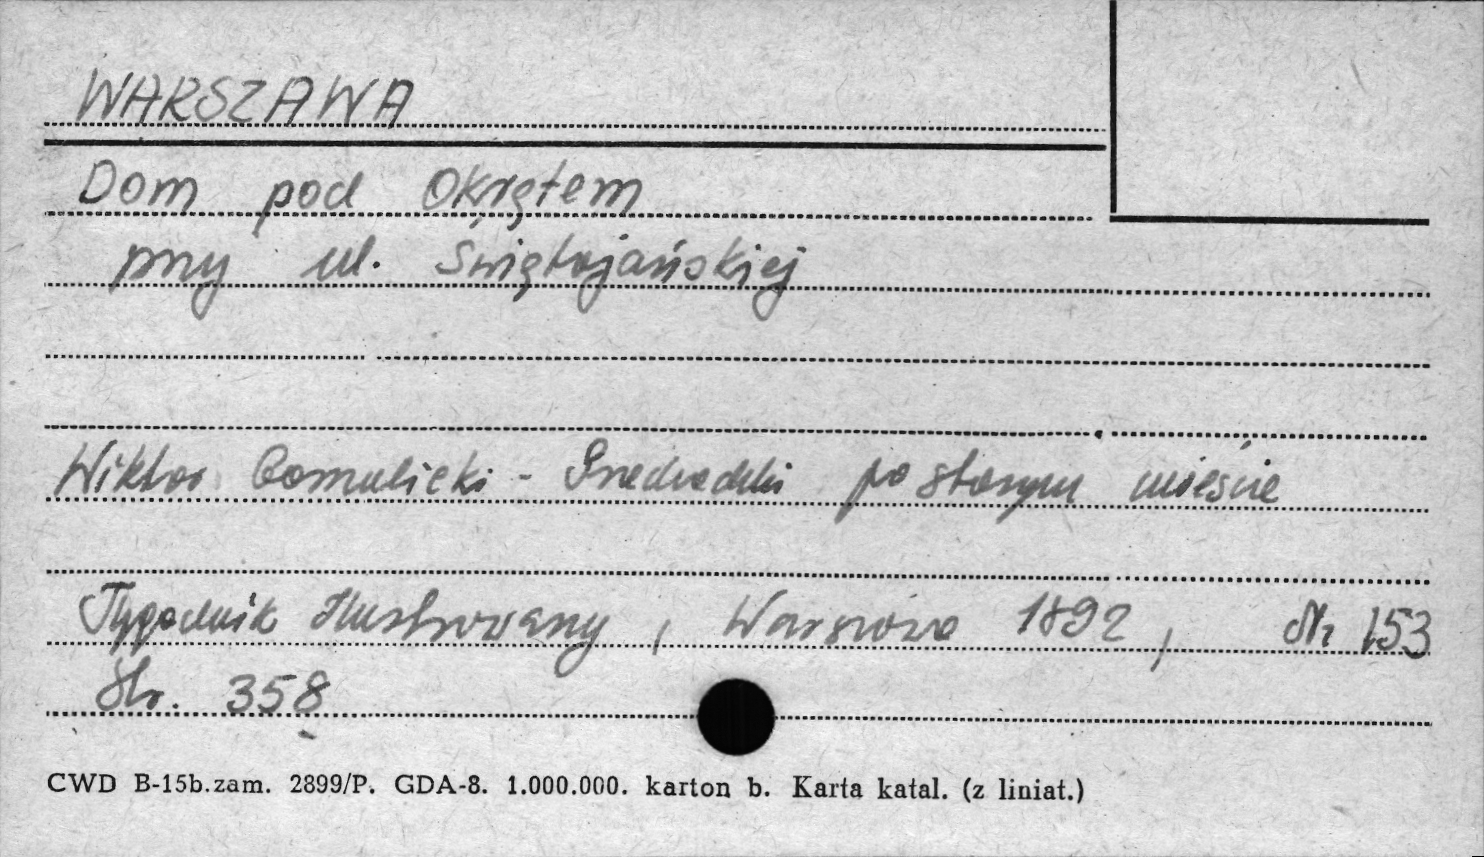 WARSZAWA
Dom pod Okrętem
przy ul. Świętojańskiej
Wiktor Gomulicki - Przechadzki po starym mieście
Tygodnik Ilustrowany, Warszawa 1892, Nr 153
Str. 358
CWD B-15b.zam. 2899/P. GDA-8. 1.000.000. karton b. Karta katal. (z liniat.)